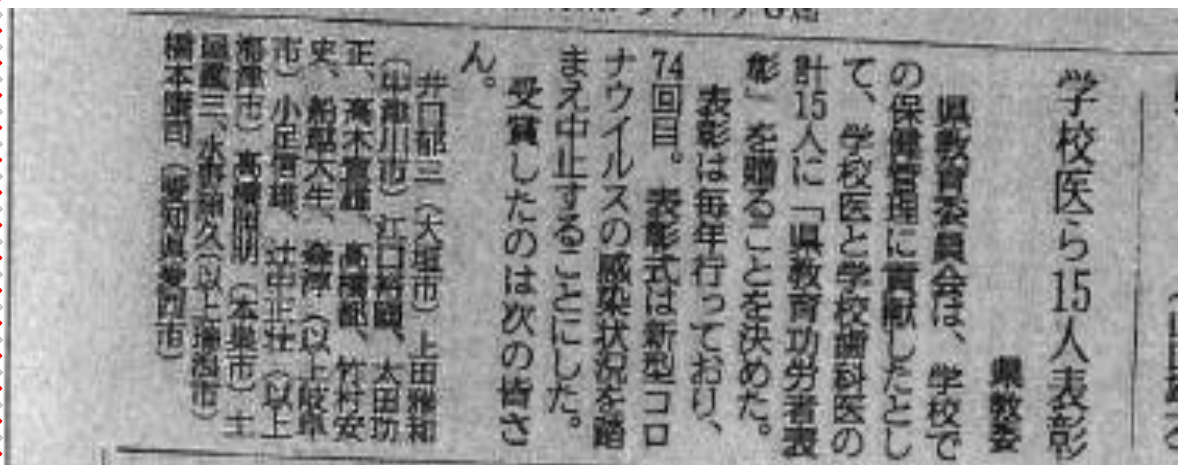 学校医ら15人表彰
県教委
県教育委員会は、学校で
の保健管理に貢献したとし
て、学校医と学校歯科医の
計15人に「県教育功労者表
彰」を贈ることを決めた。
表彰は毎年行っており、
74回目。表彰式は新型コロ
ナウイルスの感染状況を踏
まえ中止することにした。
受賞したのは次の皆さ
ん。
井口郁三(大垣市)上田雅和
(中津川市)江口裕、太田功
正、高木、高橋、竹村安
史、船戸大生、森淳(以上岐阜
市)小足信雄、辻中正壮(以上
海津市)高橋(本巣市)土
屋蔵三、久(以上瑞穂市)
橋本 司(愛知県愛西市)